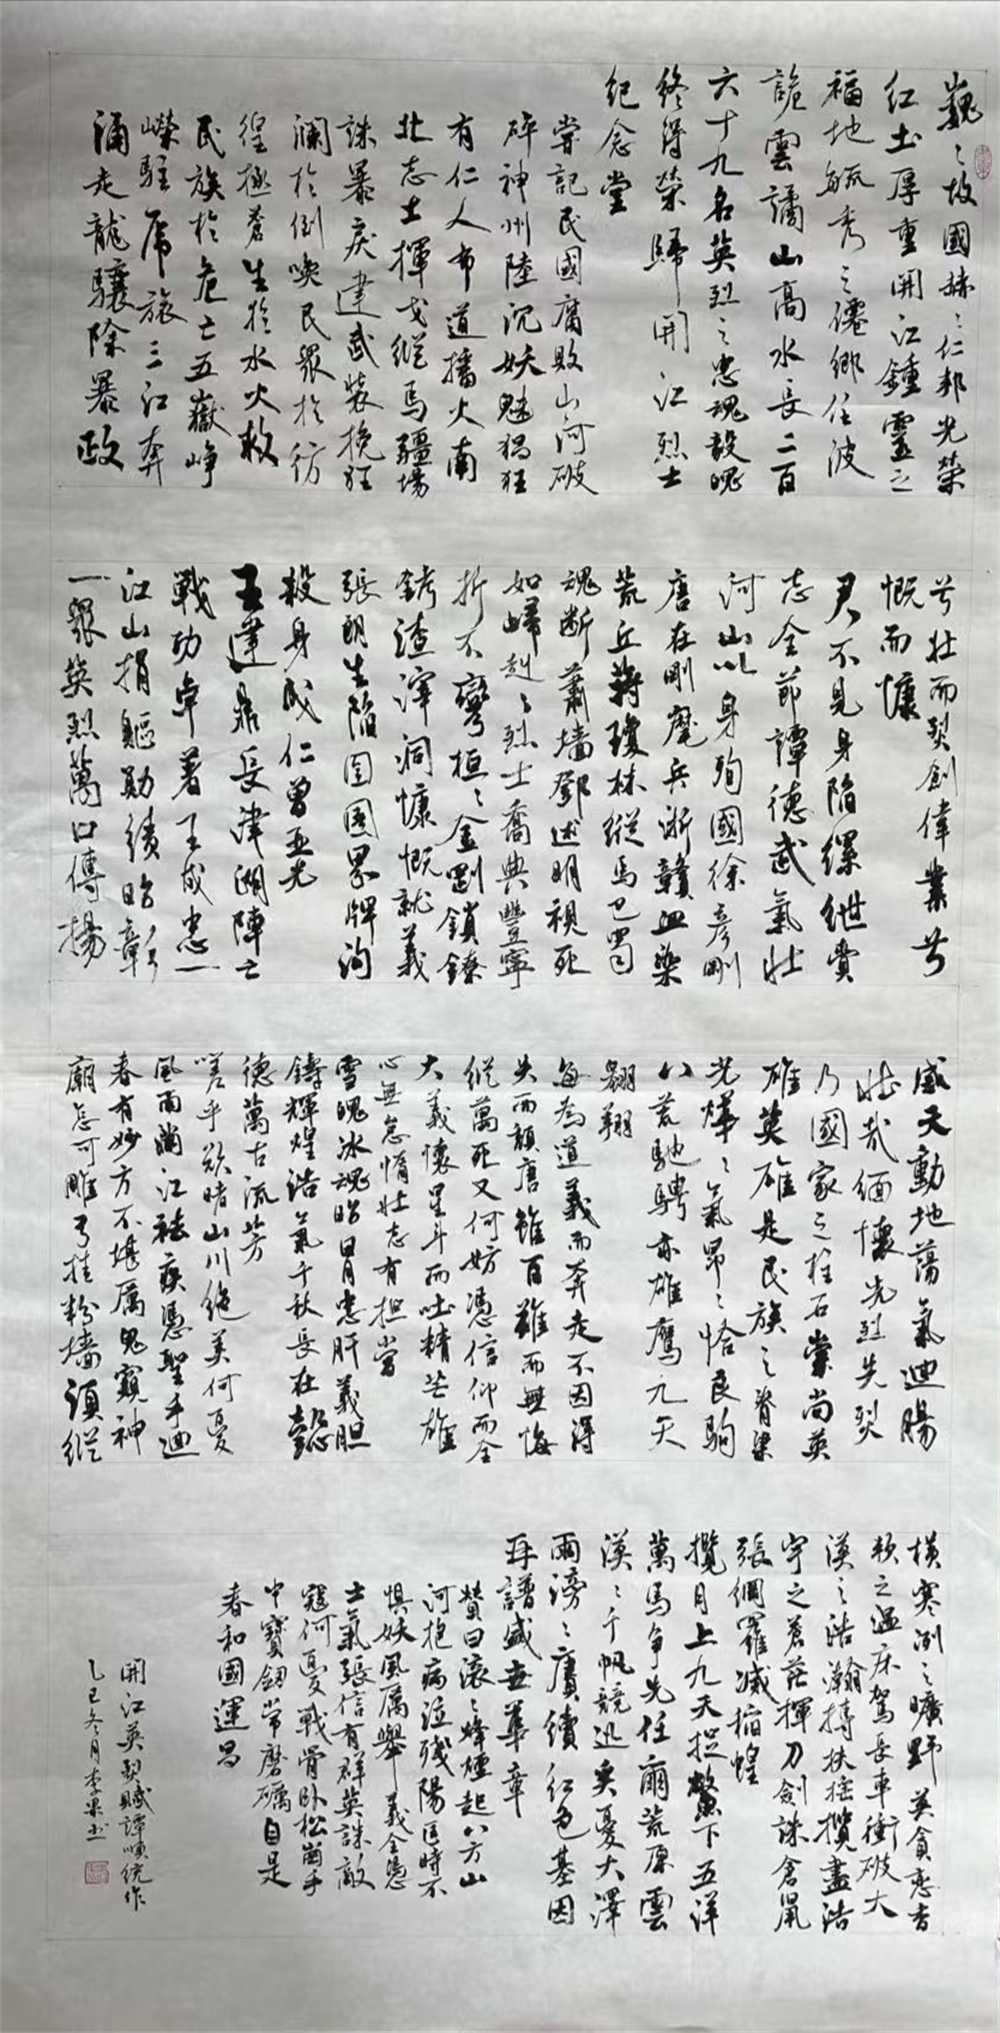 巍々故國赫々仁邦光榮
紅土厚重開江鍾靈之
福地毓秀之僊鄉任波
詭雲譎山高水長二百
六十九名英烈之忠魂毅魄
終得榮歸開江烈士
紀念堂
嘗記民國腐敗山河破
碎神州陸沉妖魅猖狂
有仁人布道播火南
北志士揮戈縱馬疆場
誅暴戾建武裝挽狂
瀾於倒喚民眾於彷
徨拯蒼生於水火救
民族於危亡五嶽崢
嶸駐虎旅三江奔
涌走龍驤除暴政
兮壯而烈創偉業兮
慨而慷
君不見身陷縲紲賞
志全節譚德武氣壯
河山以身殉國徐彥剛
唐在剛麾兵浙贛血染
荒丘蔣瓊林縱馬巴蜀
魂斷蕭墙鄧述明視死
如歸赳々烈士喬典豐寧
折不彎桓々金剛鎖鐐
銬渣滓洞慷慨就義
張朗生陷囹圄界牌洞
殺身成仁曾亚光
王達鼎長津湖陣亡
戰功卓著王成忠一
江山捐軀勳績昭彰
一眾英烈萬口傳揚
感天動地蕩氣迴腸
壯哉緬懷先烈先烈
乃國家之柱石崇尚英
雄英雄是民族之脊梁
光燁々氣昂々恰良駒
八荒馳騁亦雄鷹九天
翱翔
每為道義而奔走不因得
失而頹唐雖百難而無悔
縱萬死又何妨憑信仰而全
大義懷星斗而吐精芒雄
心無怠惰壯志有担當
雪魄冰魂昭日月忠肝義胆
鑄輝煌浩氣千秋長在懿
德萬古流芳
嗟乎欲睹山川絶美何憂
風雨滿江祛疾憑聖手迴
春有妙方不堪厲鬼窺神
廟怎可雕弓挂粉墻須縱
橫寒冽之曠野莫貪戀吉
類之溫床駕長車衝破大
漠之浩瀚搏扶摇攬盡浩
宇之蒼茫揮刀劍誅倉鼠
張綱羅滅蝗
攬月上九天捉鱉下五洋
萬馬争先任爾荒原雲
漠々千帆競迅奚憂大澤
雨滂々賡續红色基因
再譜盛世華章
贊曰滚々烽煙起八方山
河抱病泣殘陽匡時不
懼妖風厲舉義全憑
士氣張信有群英誅敵
寇何憂戰骨卧松崗手
中寶劔常磨礪自是
春和國運昌
開江英烈赋譚順統作
乙巳冬月李果书